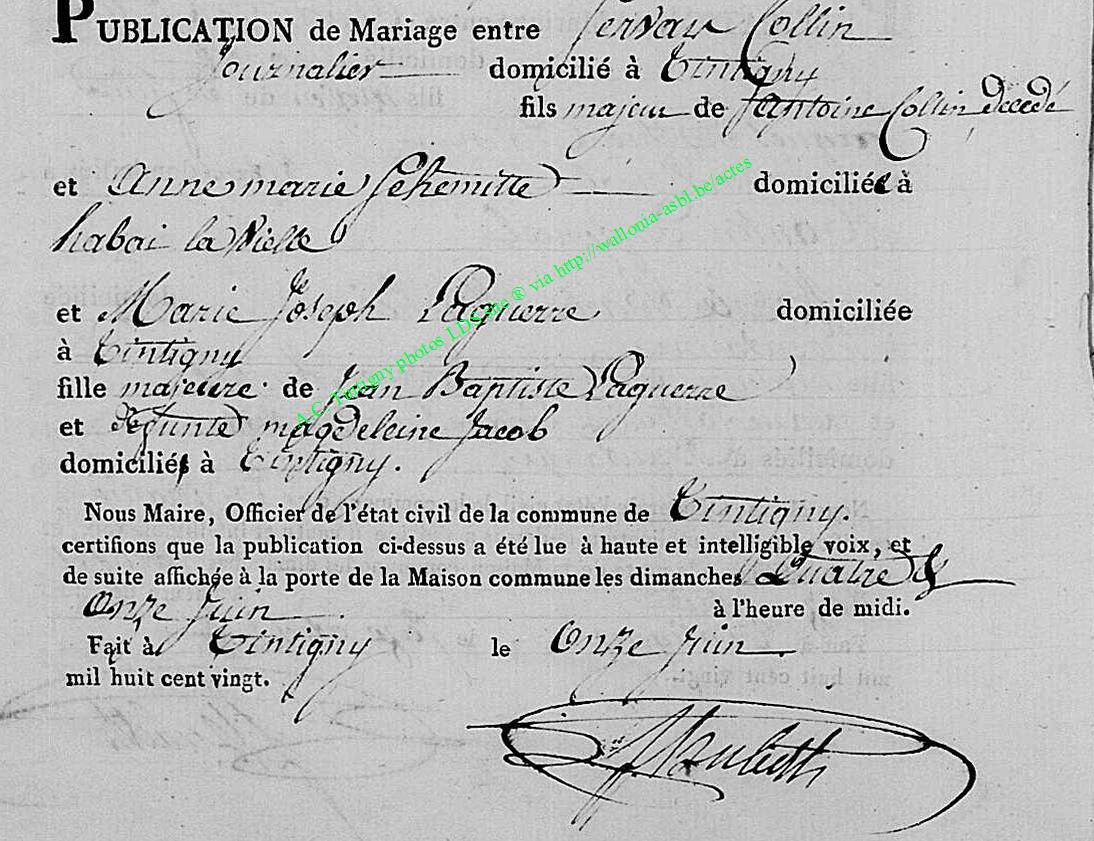 PUBLICATION de Mariage entre Servais Collin
Journalier domicilié à Tintigny
fils majeur de Antoine Collin décédé
et anne marie domiciliée à
habai la vielle
et Marie Joseph Laguerre domiciliée
à Tintigny
fille majeure de Jean Baptiste Laguerre
et defunte magdeleine Jacob
domiciliés à Tintigny.
Nous Maire, Officier de l'état civil de la commune de Tintigny.
certifions que la publication ci-dessus a été lue à haute et intelligible voix, et
de suite affichée à la porte de la Maison commune les dimanches Quatre &
Onze Juin à l'heure de midi.
Fait à Tintigny le Onze Juin
mil huit cent vingt.
A.C. Tintigny photos LDS site ® via http://wallonia-asbl.be/actes